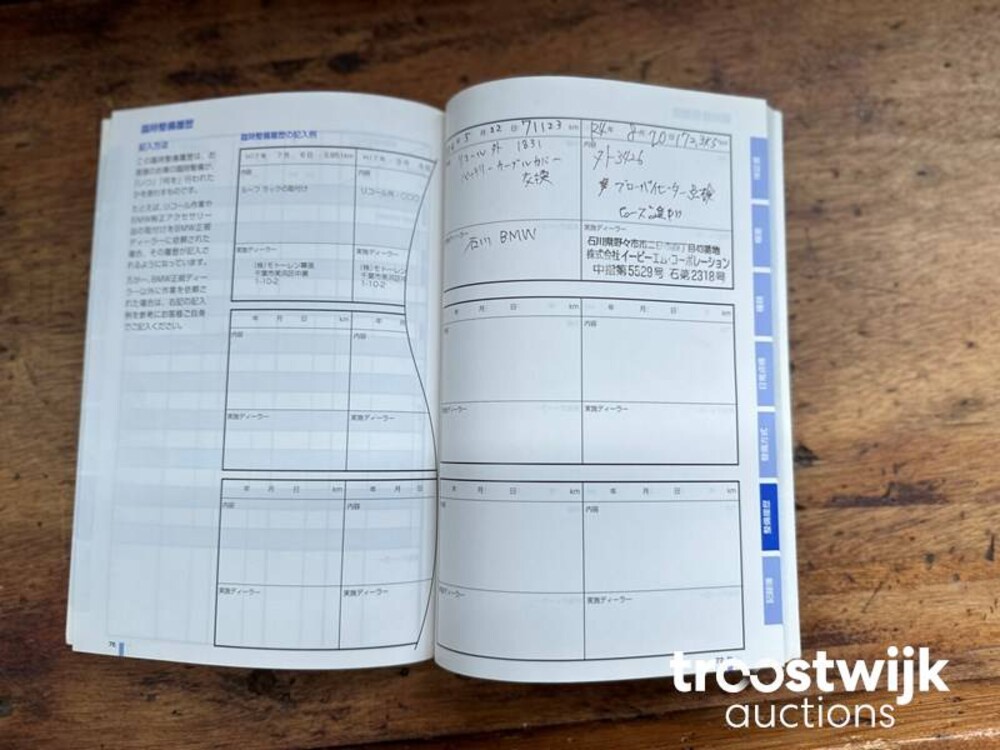 臨時整備履歴
記入方法
この臨時整備履歴は、お
たとえば、リコール作業や
BMW純正アクセサリー
品の取付けをBMW正規
ディーラーに依頼された
場合、その履歴が記入さ
れるようになっています。
万が一、BMW正規ディー
ラー以外に作業を依頼さ
れた場合は、右記の記入
例を参考にお客様ご自身
でご記入ください。
臨時整備履歴の記入例
内容
ルーフ ラックの取付け
実施ディーラー
(株)モトーレン幕張
千葉市美浜区中瀬
1-10-2
内容
リコール
実施ディーラー
(株)モトーレン
千葉市美浜区
1-10-2
年 月 日 km
年 月 日
内容
内容
実施ディーラー
実施ディーラー
年 月 日 km
年 月 日
内容
内容
実施ディーラー
実施ディーラー
5 月 22 日 71123 km
リコール 外 1831
バッテリーケーブルカバー
交換
ディーラー
石川 BMW
24 年 8 月 20 日
内容
外3426
ブローバイヒーター 点検
実施ディーラー
株式会社イーピーエム・コーポレーション
中部第5529号 石第2318号
年 月 日 km
年 月 日 km
内容
ディーラー
実施ディーラー
年 月 日 km
年 月 日 km
内容
ディーラー
実施ディーラー
保証書
日常点検
整備方式
整備履歴
記録簿
76
77
troostwijk
auctions